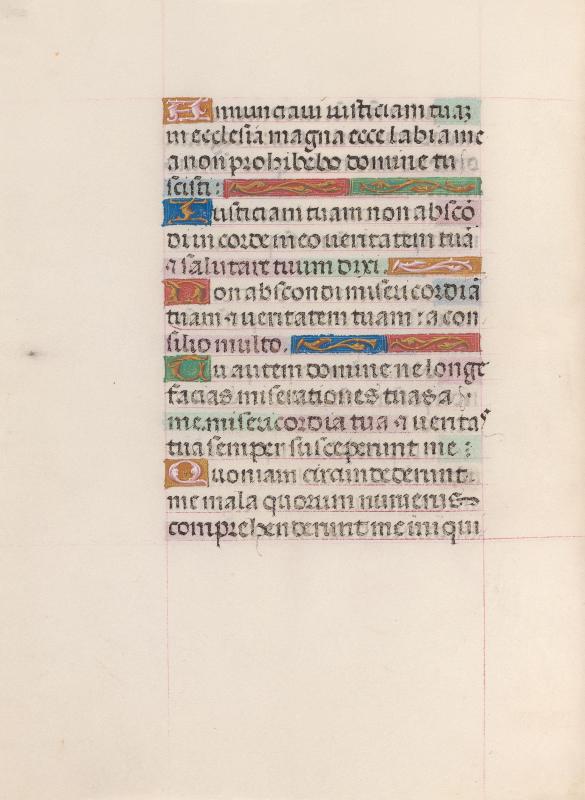 Annunciavi iusticiam tuaʒ
in ecclesia magna ecce labia me
a non prohibebo domine tu
scisti :
Iusticiam tuam non abscō
di in corde meo veritatem tuā
⁊ salutare tuum dixi.
Non abscondi misericordiā
tuam ⁊ veritatem tuam : a con
silio multo.
Tu autem domine ne longe
facias miserationes tuas a
me. misericordia tua ⁊ verita
tua semper susceperunt me :
Quoniam circundederunt
me mala quorum numerus
comprehenderunt me iniqui